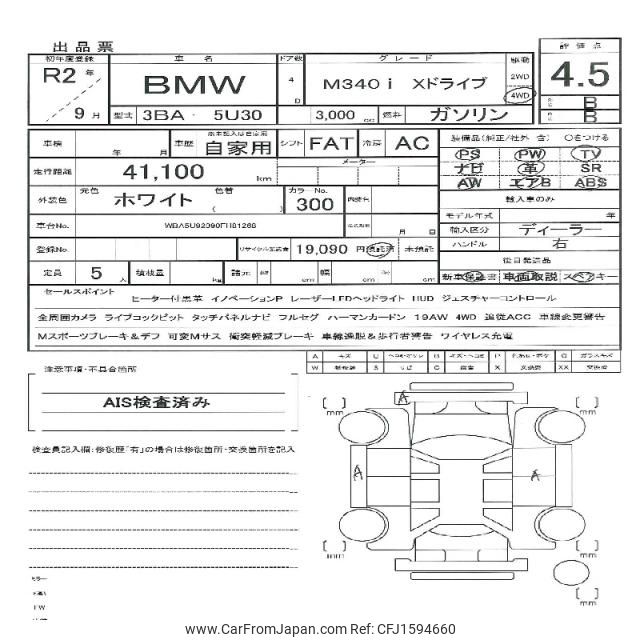 出品票
初年度登録 車名 ドア数 グレード 駆動 評価点
R2年 BMW 4 M340i Xドライブ 2WD 4WD 4.5
／9月 型式 3BA - 5U30 D 3,000 cc 燃料 ガソリン B
B
車検 年 月 車歴 自家用 シフト FAT 冷房 AC 装備品(純正/社外 含) 〇をつける
走行距離 41,100 km メーター PS PW TV
ナビ 革 SR
AW エアB ABS
外装色 元色 ホワイト 色替 ( カラーNo. 300 内装色 輸入車のみ
モデル年式 年
車台No. 月 日 輸入区分 ディーラー
登録No. リサイクル預託金 19,090 円 預託済 未預託 ハンドル 右
後日発送品
定員 5 人 積載量 kg 諸元 cm 幅 cm cm 新車保証書 車両取説 スペアキー
セールスポイント
ヒーター付黒革 イノベーションP レーザーLEDヘッドライト HUD ジェスチャーコントロール
全周囲カメラ ライブコックピット タッチパネルナビ フルセグ ハーマンカードン 19AW 4WD 追従ACC 車線変更警告
Mスポーツブレーキ&デフ 可変Mサス 衝突軽減ブレーキ 車線逸脱&歩行者警告 ワイヤレス充電
A キズ U B キズ・ヘコミ P G ガラスキズ
W S サビ C 腐食 X 交換要 XX 交換済
注意事項・不具合箇所
AIS検査済み
検査員記入欄:修復歴「有」の場合は修復箇所・交換箇所を記入
A
[ ] mm
[ ] mm
A
A
[ ] mm
[ ] mm
[ ] mm
www.CarFromJapan.com Ref: CFJ1594660